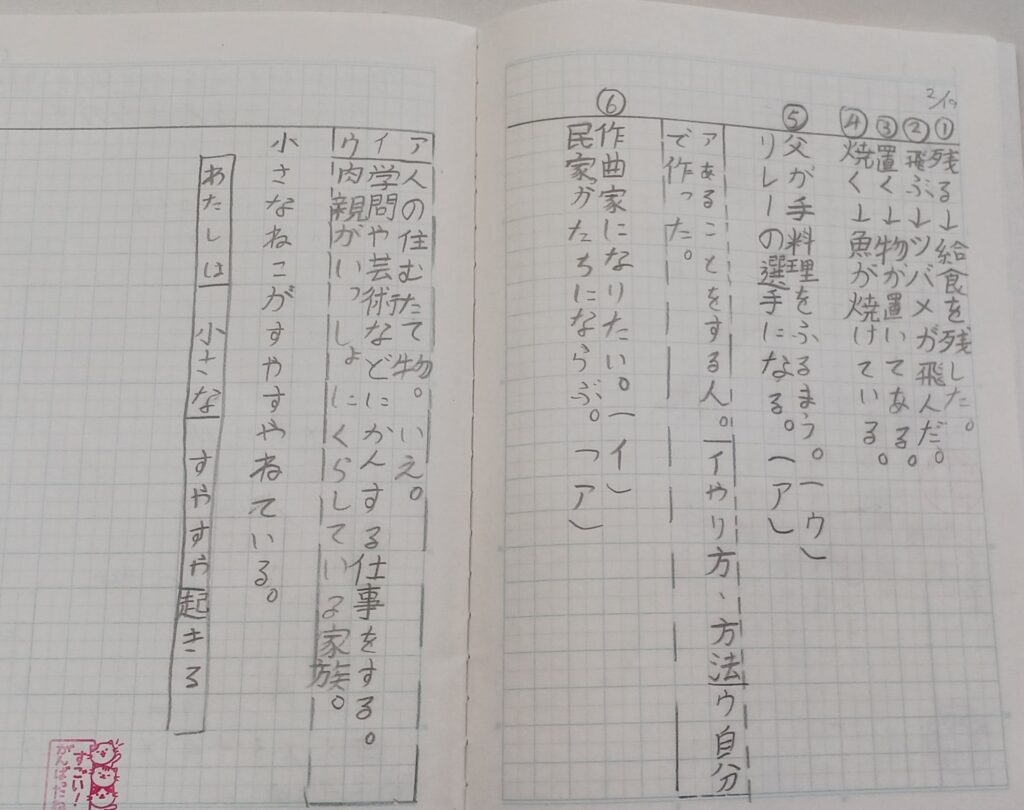 2/17
①残る→給食を残した。
②飛ぶ→ツバメが飛んだ。
③置く→物が置いてある。
④焼く→魚が焼けている。
⑤父が手料理をふるまう。(ウ)
リレーの選手になる。(ア)
アあることをする人。イやり方、方法ウ自分
で作った。
⑥作曲家になりたい。(イ)
民家がたちにならぶ。(ア)
ア人の住むたて物。いえ。
イ学問や芸術などにかんする仕事をする。
ウ肉親がいっしょにくらしている家族。
小さなねこがすやすやねている。
あたしは 小さな すやすや起きる
すごい!
がんばったね